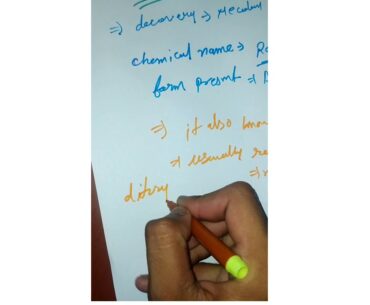 ⇒ decovery →
chemical name →
form present ⇒
⇒ it also know
→ usually re
ditery